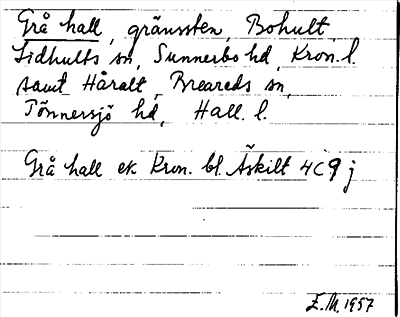 Grå hall, gränssten, Bohult,
Lidhults sn, Sunnerbo hd, Kron. l.
samt Håralt, Breareds sn,
Tönnersjö hd, Hall. l.
Grå hall ek Kron. bl. Äskilt 4C9j
E.M. 1957